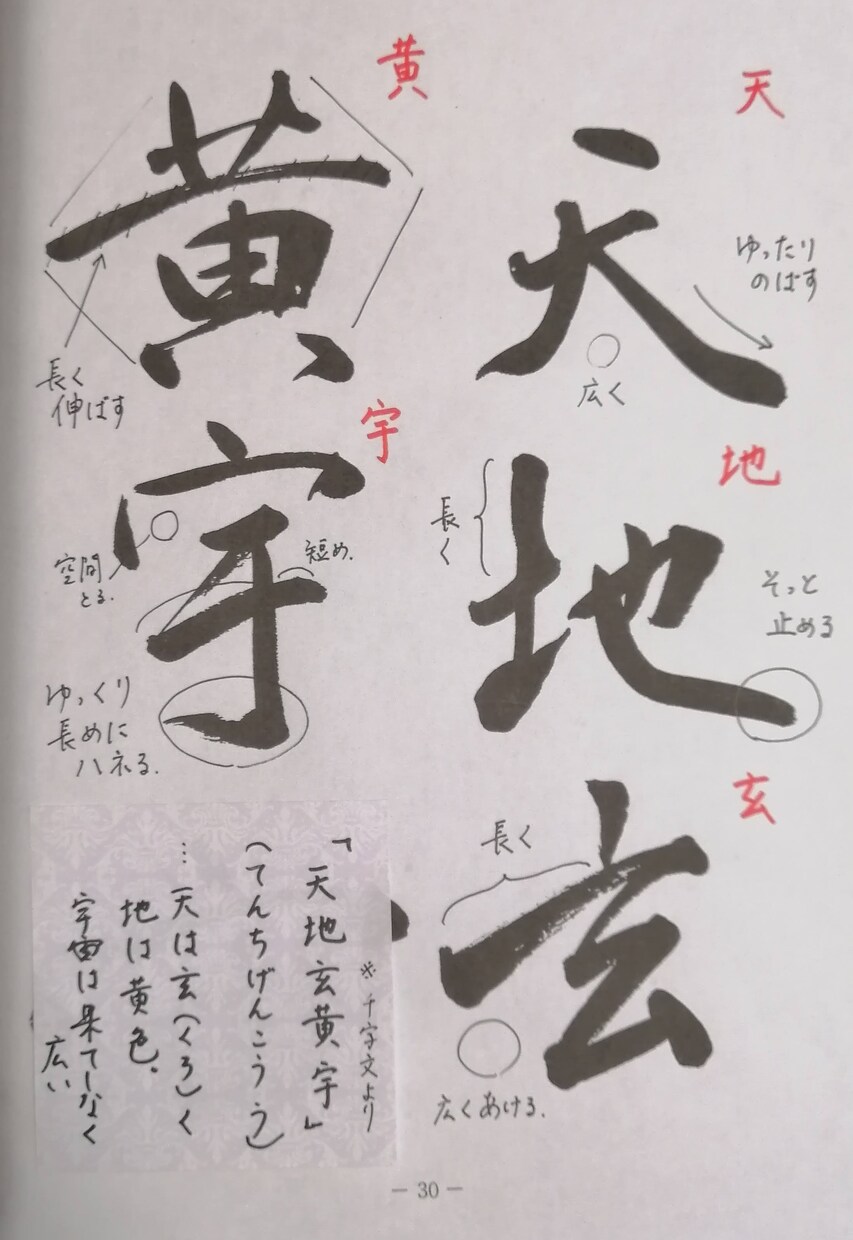 天
天
ゆったり
のばす
広く
地
地
長く
そっと
止める
玄
玄
長く
広くあける.
黄
黄
長く
伸ばす
宇
宇
空間
とる.
短め.
ゆっくり
長めに
ハネる.
「天地玄黄宇」
※千字文より
(てんちげんこうう)
…天は玄(くろ)く
地は黄色。
宇宙は果てしなく
広い
− 30 −